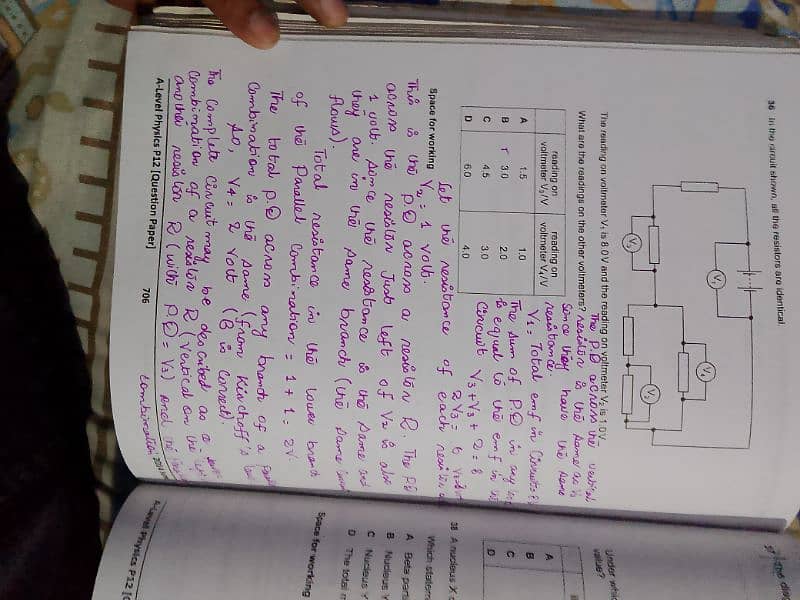 36 In the circuit shown, all the resistors are identical.
V₁
V₄
V₃
V₂
The reading on voltmeter V₁ is 8.0V and the reading on voltmeter V₂ is 1.0V.
What are the readings on the other voltmeters?
reading on voltmeter V₃/V reading on voltmeter V₄/V
A 1.5 1.0
B 3.0 2.0
C 4.5 3.0
D 6.0 4.0
The P.D across the vertical
resistor is the same as
since they have the same
resistance.
V₁ = Total emf in Circuit = 8
The sum of P.D in any
is equal to the emf in the
Circuit V₃ + V₃ + 2 = 8
2V₃ = 6
Space for working
Let the resistance of each resistor
V₂ = 1 volt.
This is the P.D across a resistor R. The PD
across the resistor Just left of V₂ is also
1 volt. Since the resistance is the same and
they are in the same branch (the same
flows).
Total resistance in the lower branch
of the Parallel Combination = 1 + 1 = 2V.
The total P.D across any branch of a
Combination is the same (from Kirchoff's
So, V₄ = 2 volt (B is correct).
The complete circuit may be described as a
Combination of a resistor R (vertical on the
another resistor R (with P.D = V₃) and the
combination
A-Level Physics P12 [Question Paper] 706
Under which
value?
A
B
C
D
38 A nucleus X
Which
A Beta
B Nucleus
C Nucleus Y
D The total
Space for working
A-Level Physics P12